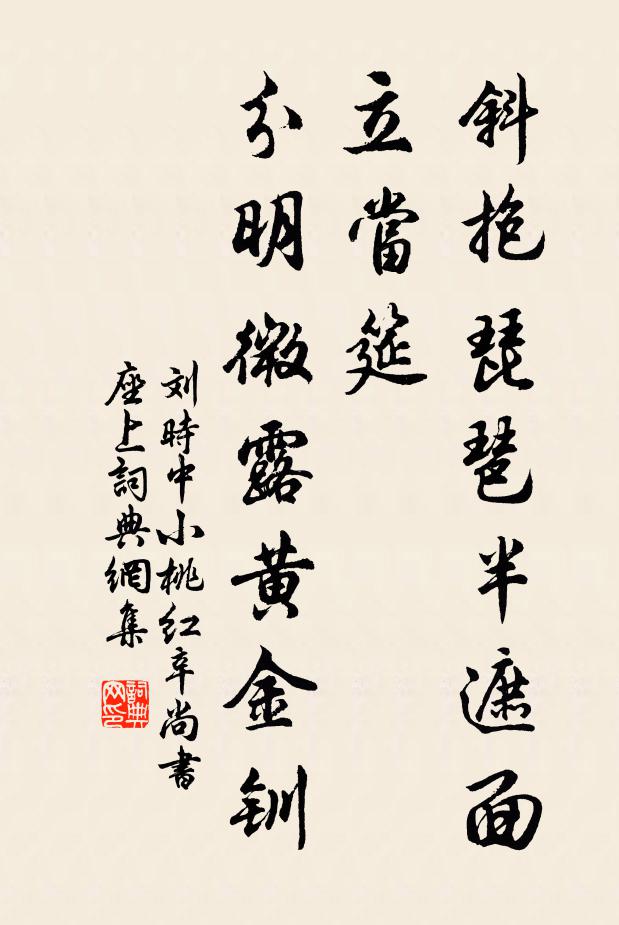 斜抱琵琶半遮面
立當筵
分明微露黄金釧
刘時中小桃红辛尚書
座上詞典網集
詞典網印